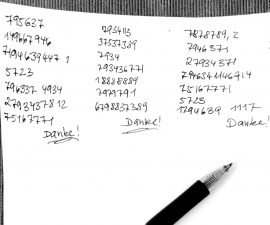 795637
149667946
7194639447 1
5723
796337 4934
2793437812
75167771
Danke!
7934113
37537389
7934
793436771
18888889
7979791
6798837389
Danke!
7878789,2
7946371
27934371
75167771
5723
1794639 1117
Danke!